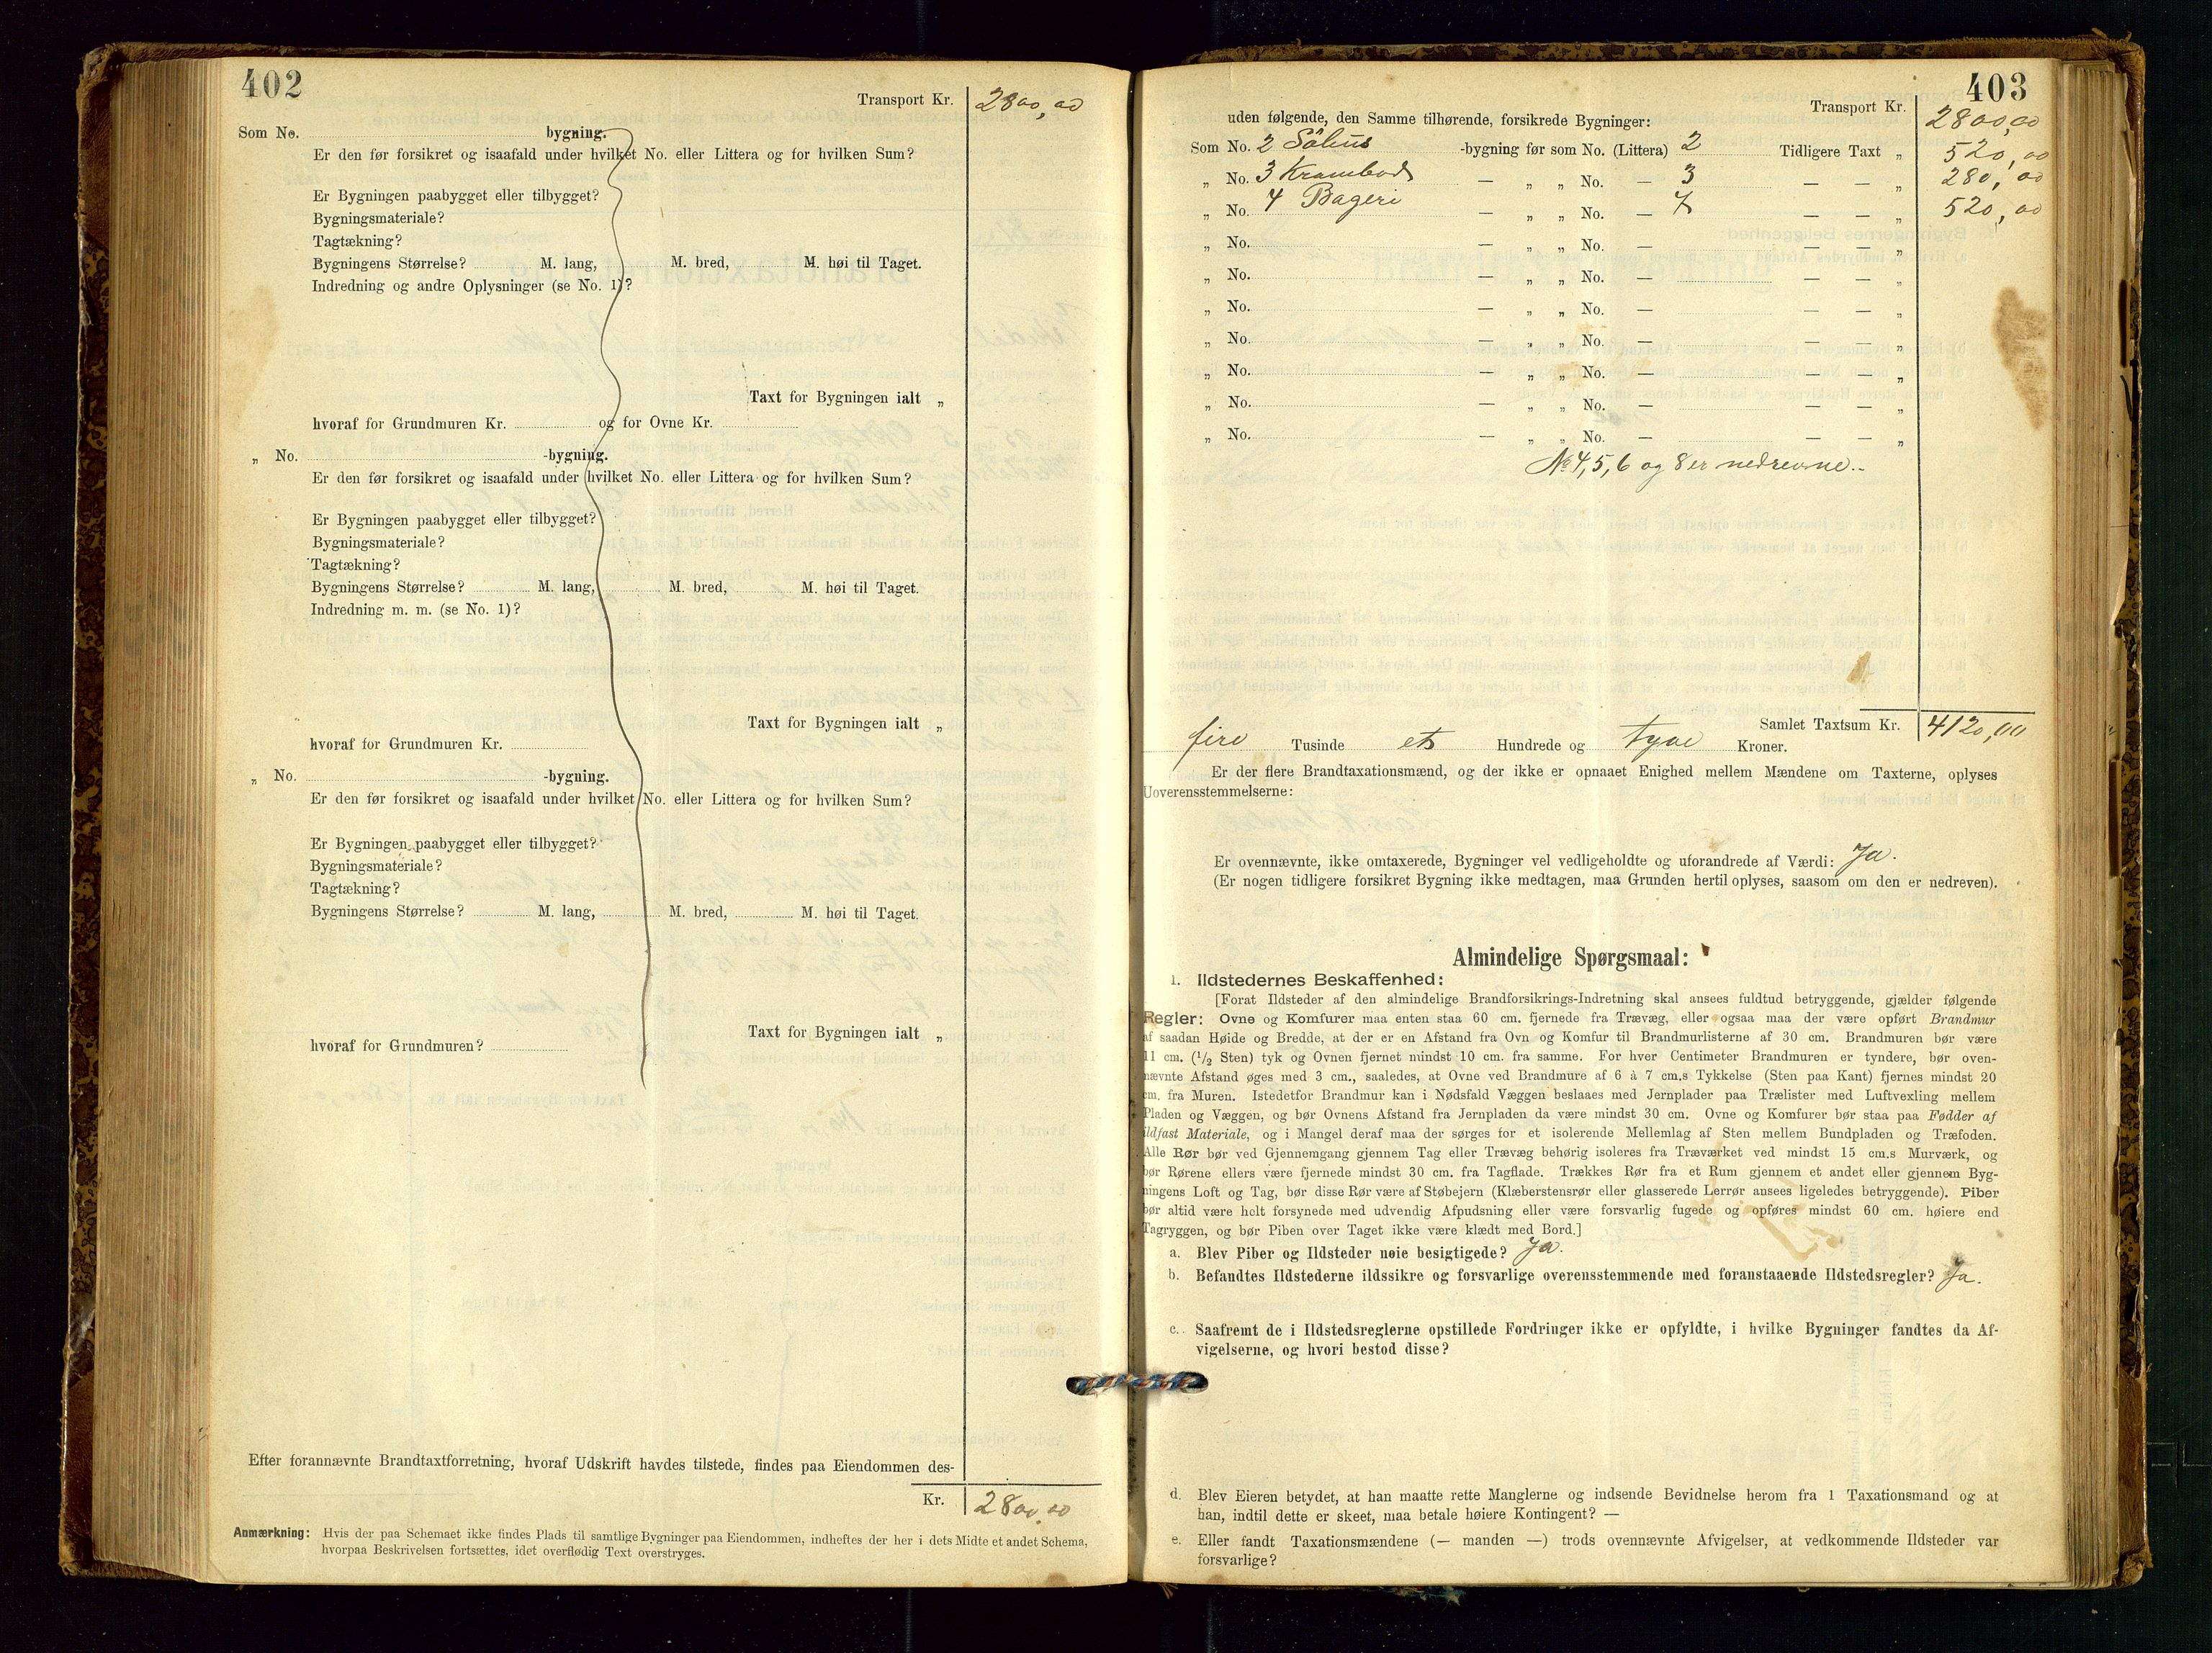 402
Transport Kr. 2800,00
Som No. bygning.
Er den før forsikret og isaafald under hvilket No. eller Littera og for hvilken Sum?
Er Bygningen paabygget eller tilbygget?
Bygningsmateriale?
Tagtækning?
Bygningens Størrelse? M. lang, M. bred, M. høi til Taget.
Indredning og andre Oplysninger (se No. 1)?
Taxt for Bygningen ialt „
hvoraf for Grundmuren Kr. og for Ovne Kr.
„ No. -bygning.
Er den før forsikret og isaafald under hvilket No. eller Littera og for hvilken Sum?
Er Bygningen paabygget eller tilbygget?
Bygningsmateriale?
Tagtækning?
Bygningens Størrelse? M. lang, M. bred, M. høi til Taget.
Indredning m. m. (se No. 1)?
Taxt for Bygningen ialt „
hvoraf for Grundmuren Kr.
„ No. -bygning.
Er den før forsikret og isaafald under hvilket No. eller Littera og for hvilken Sum?
Er Bygningen paabygget eller tilbygget?
Bygningsmateriale?
Tagtækning?
Bygningens Størrelse? M. lang, M. bred, M. høi til Taget.
Taxt for Bygningen ialt „
hvoraf for Grundmuren?
Efter forannævnte Brandtaxtforretning, hvoraf Udskrift havdes tilstede, findes paa Eiendommen des-
Kr. 2800,00
Anmærkning: Hvis der paa Schemaet ikke findes Plads til samtlige Bygninger paa Eiendommen, indheftes der her i dets Midte et andet Schema,
hvorpaa Beskrivelsen fortsættes, idet overflødig Text overstryges.
403
Transport Kr. 2800,00
uden følgende, den Samme tilhørende, forsikrede Bygninger:
Som No. 2 Söhus -bygning før som No. (Littera) 2 Tidligere Taxt „ 520,00
„ No. 3 Krambod — „ „ No. — 3 — — „ 280,00
„ No. 4 Bageri — „ „ No. — 7 — — „ 520,00
„ No. — „ „ No. — — — „
„ No. — „ „ No. — — — „
„ No. — „ „ No. — — — „
„ No. — „ „ No. — — — „
„ No. — „ „ No. — — — „
„ No. — „ „ No. — — — „
„ No. — „ „ No. — — — „
No 4, 5, 6 og 8 er nedrevne.-
Samlet Taxtsum Kr. 4120,00
fire Tusinde et Hundrede og tyve Kroner.
Er der flere Brandtaxationsmænd, og der ikke er opnaaet Enighed mellem Mændene om Taxterne, oplyses
Uoverensstemmelserne:
Er ovennævnte, ikke omtaxerede, Bygninger vel vedligeholdte og uforandrede af Værdi: Ja.
(Er nogen tidligere forsikret Bygning ikke medtagen, maa Grunden hertil oplyses, saasom om den er nedreven).
Almindelige Spørgsmaal:
1. Ildstedernes Beskaffenhed:
[Forat Ildsteder af den almindelige Brandforsikrings-Indretning skal ansees fuldtud betryggende, gjælder følgende
Regler: Ovne og Komfurer maa enten staa 60 cm. fjernede fra Trævæg, eller ogsaa maa der være opført Brandmur
af saadan Høide og Bredde, at der er en Afstand fra Ovn og Komfur til Brandmurlisterne af 30 cm. Brandmuren bør være
11 cm. (1/2 Sten) tyk og Ovnen fjernet mindst 10 cm. fra samme. For hver Centimeter Brandmuren er tyndere, bør oven-
nævnte Afstand øges med 3 cm., saaledes, at Ovne ved Brandmure af 6 à 7 cm.s Tykkelse (Sten paa Kant) fjernes mindst 20
cm. fra Muren. Istedetfor Brandmur kan i Nødsfald Væggen beslaaes med Jernplader paa Trælister med Luftvexling mellem
Pladen og Væggen, og bør Ovnens Afstand fra Jernpladen da være mindst 30 cm. Ovne og Komfurer bør staa paa Fødder af
ildfast Materiale, og i Mangel deraf maa der sørges for et isolerende Mellemlag af Sten mellem Bundpladen og Træfoden.
Alle Rør bør ved Gjennemgang gjennem Tag eller Trævæg behørig isoleres fra Træværket ved mindst 15 cm.s Murværk, og
bør Rørene ellers være fjernede mindst 30 cm. fra Tagflade. Trækkes Rør fra et Rum gjennem et andet eller gjennem Byg-
ningens Loft og Tag, bør disse Rør være af Støbejern (Klæberstensrør eller glasserede Lerrør ansees ligeledes betryggende). Piber
bør altid være helt forsynede med udvendig Afpudsning eller være forsvarlig fugede og opføres mindst 60 cm. høiere end
Tagryggen, og bør Piben over Taget ikke være klædt med Bord.]
a. Blev Piber og Ildsteder nøie besigtigede? Ja.
b. Befandtes Ildstederne ildssikre og forsvarlige overensstemmende med foranstaaende Ildstedsregler? Ja.
c. Saafremt de i Ildstedsreglerne opstillede Fordringer ikke er opfyldte, i hvilke Bygninger fandtes da Af-
vigelserne, og hvori bestod disse?
d. Blev Eieren betydet, at han maatte rette Manglerne og indsende Bevidnelse herom fra 1 Taxationsmand og at
han, indtil dette er skeet, maa betale høiere Kontingent? —
e. Eller fandt Taxationsmændene (— manden —) trods ovennævnte Afvigelser, at vedkommende Ildsteder var
forsvarlige?